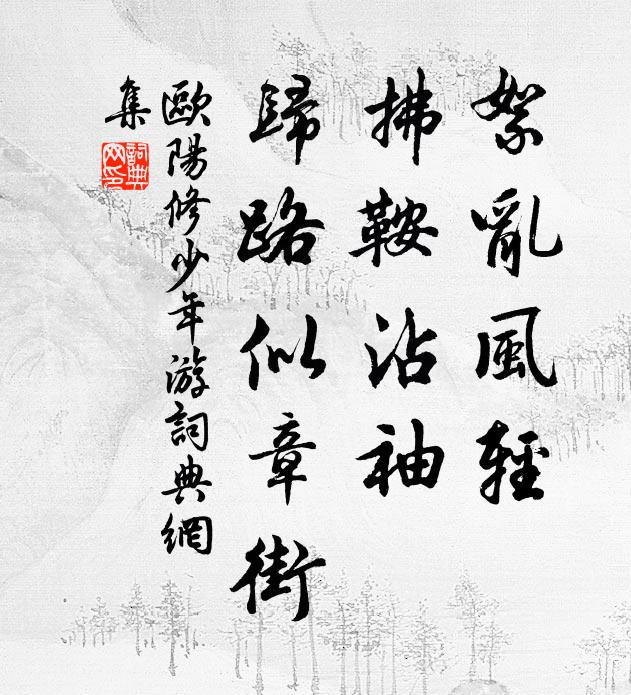 絮亂風輕
拂鞍沾袖
歸路似章街
歐陽修少年游詞典網
集
詞典网印